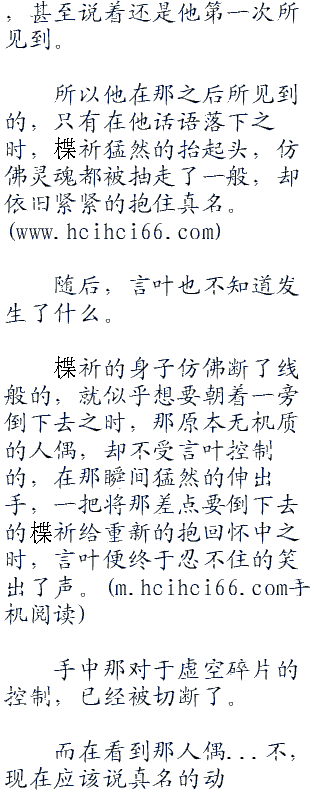 ，甚至说着还是他第一次所
见到。
所以他在那之后所见到
的，只有在他话语落下之
时，楪祈猛然的抬起头，仿
佛灵魂都被抽走了一般，却
依旧紧紧的抱住真名。
(www.hcihci66.com)
随后，言叶也不知道发
生了什么。
楪祈的身子仿佛断了线
般的，就似乎想要朝着一旁
倒下去之时，那原本无机质
的人偶，却不受言叶控制
的，在那瞬间猛然的伸出
手，一把将那差点要倒下去
的楪祈给重新的抱回怀中之
时，言叶便终于忍不住的笑
出了声。(m.hcihci66.com手
机阅读)
手中那对于虚空碎片的
控制，已经被切断了。
而在看到那人偶...不，
现在应该说真名的动